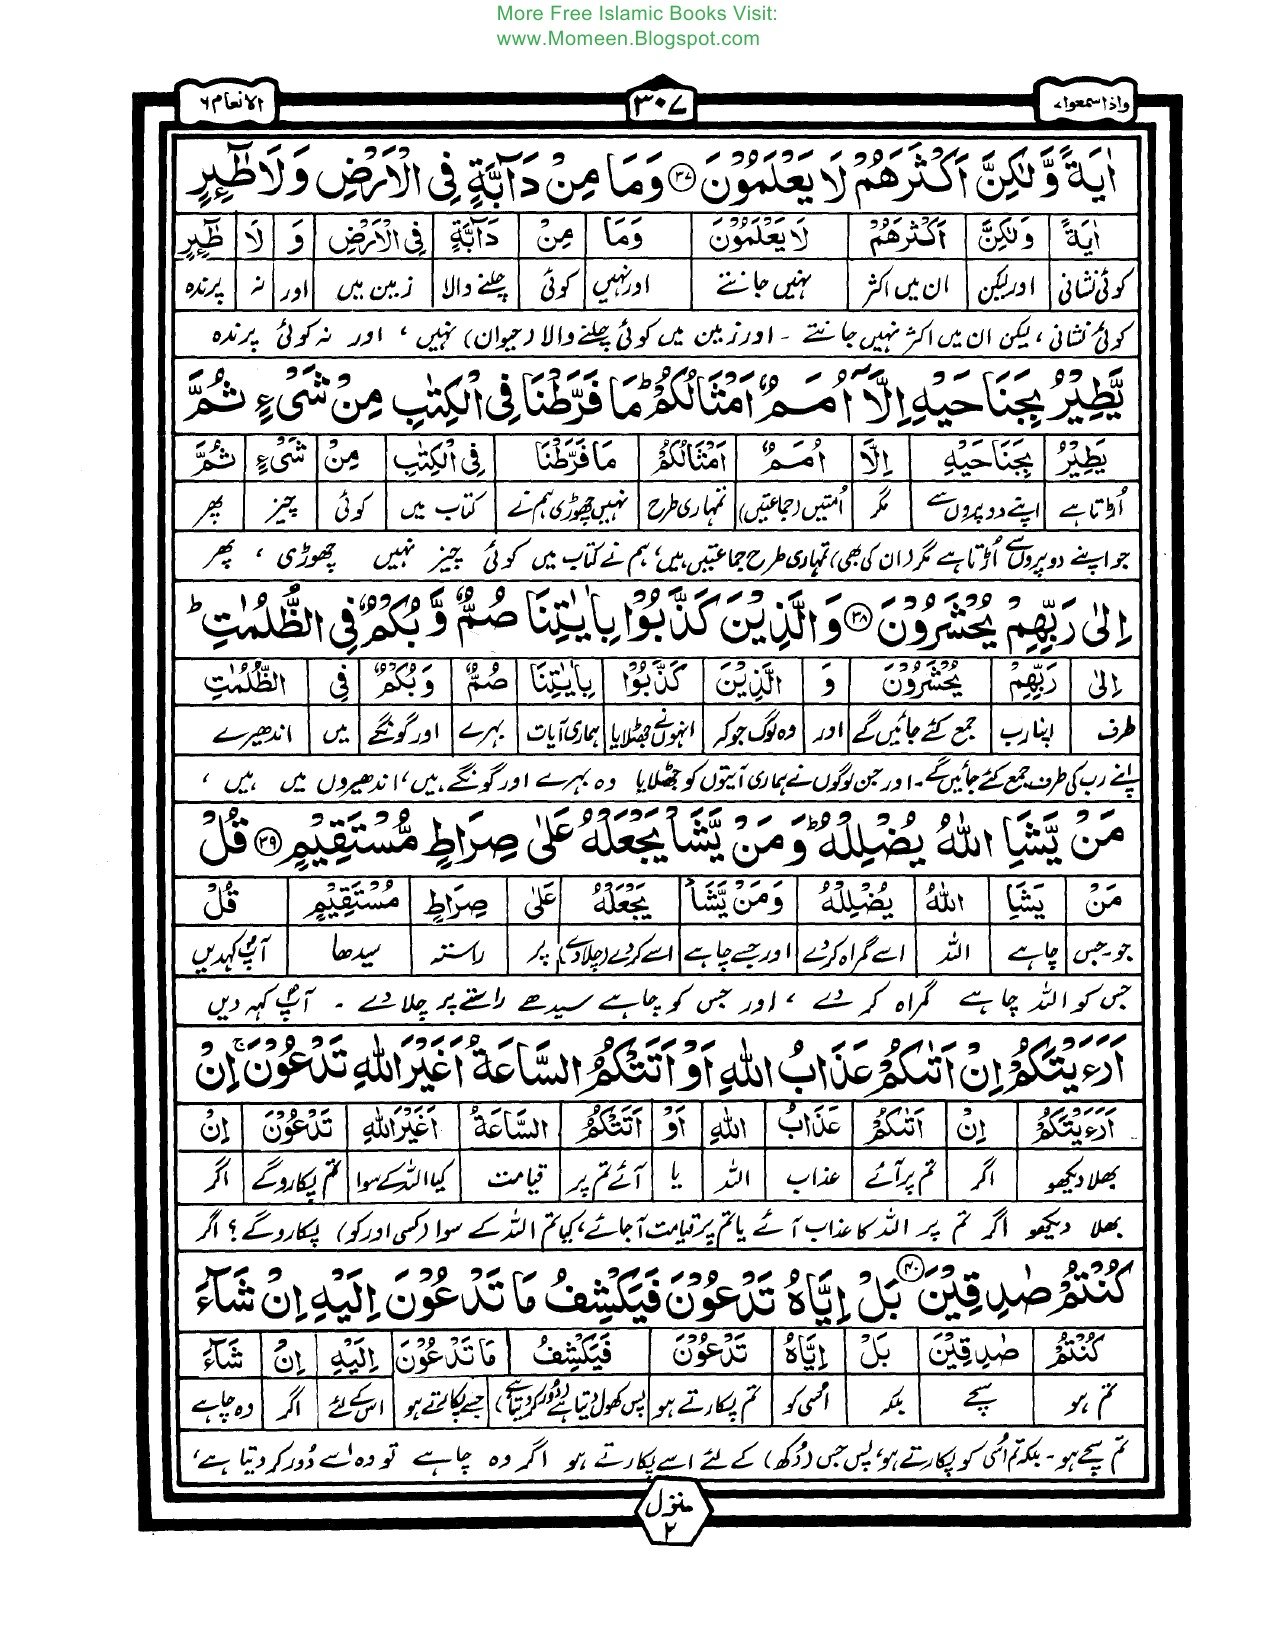 More Free Islamic Books Visit:
www.Momeen.Blogspot.com
واذاسمعوا۷ ۳۰۷ الانعام۶
اٰيَةً وَّلٰكِنَّ اَكْثَرَهُمْ لَا يَعْلَمُوْنَ ۳۷ وَمَا مِنْ دَآبَّةٍ فِى الْاَرْضِ وَلَا طٰٓئِرٍ
اٰيَةً وَلٰكِنَّ اَكْثَرَهُمْ لَا يَعْلَمُوْنَ وَمَا مِنْ دَآبَّةٍ فِى الْاَرْضِ وَ لَا طٰٓئِرٍ
کوئی نشانی اور لیکن ان میں اکثر نہیں جانتے اور نہیں کوئی چلنے والا زمین میں اور نہ پرندہ
کوئی نشانی ، لیکن ان میں اکثر نہیں جانتے ۔ اور زمین میں کوئی چلنے والا (حیوان) نہیں ، اور نہ کوئی پرندہ
يَّطِيْرُ بِجَنَاحَيْهِ اِلَّآ اُمَمٌ اَمْثَالُكُمْ ؕ مَا فَرَّطْنَا فِى الْكِتٰبِ مِنْ شَىْءٍ ثُمَّ
يَطِيْرُ بِجَنَاحَيْهِ اِلَّا اُمَمٌ اَمْثَالُكُمْ مَا فَرَّطْنَا فِى الْكِتٰبِ مِنْ شَىْءٍ ثُمَّ
اُڑتا ہے اپنے دو پروں سے مگر اُمتیں (جماعتیں) تمہاری طرح نہیں چھوڑی ہم نے کتاب میں کوئی چیز پھر
جو اپنے دو پروں سے اُڑتا ہے مگر (ان کی بھی) تمہاری طرح جماعتیں ہیں، ہم نے کتاب میں کوئی چیز نہیں چھوڑی ، پھر
اِلٰى رَبِّهِمْ يُحْشَرُوْنَ ۳۸ وَالَّذِيْنَ كَذَّبُوْا بِاٰيٰتِنَا صُمٌّ وَّبُكْمٌ فِى الظُّلُمٰتِ ؕ
اِلٰى رَبِّهِمْ يُحْشَرُوْنَ وَ الَّذِيْنَ كَذَّبُوْا بِاٰيٰتِنَا صُمٌّ وَبُكْمٌ فِى الظُّلُمٰتِ
طرف اپنا رب جمع کئے جائیں گے اور وہ لوگ جو کہ انہوں نے جھٹلایا ہماری آیات بہرے اور گونگے میں اندھیرے
اپنے رب کی طرف جمع کئے جائیں گے۔ اور جن لوگوں نے ہماری آیتوں کو جھٹلایا وہ بہرے اور گونگے ہیں، اندھیروں میں ہیں ،
مَنْ يَّشَاِ اللّٰهُ يُضْلِلْهُ ؕ وَمَنْ يَّشَاْ يَجْعَلْهُ عَلٰى صِرَاطٍ مُّسْتَقِيْمٍ ۳۹ قُلْ
مَنْ يَشَاِ اللّٰهُ يُضْلِلْهُ وَمَنْ يَّشَاْ يَجْعَلْهُ عَلٰى صِرَاطٍ مُسْتَقِيْمٍ قُلْ
جو۔ جس چاہے اللہ اسے گمراہ کر دے اور جسے چاہے اسے کر دے (چلا دے) پر راستہ سیدھا آپؐ کہدیں
جس کو اللہ چاہے گمراہ کر دے ، اور جس کو چاہے سیدھے راستے پر چلا دے ۔ آپؐ کہہ دیں
اَرَءَيْتَكُمْ اِنْ اَتٰىكُمْ عَذَابُ اللّٰهِ اَوْ اَتَتْكُمُ السَّاعَةُ اَغَيْرَ اللّٰهِ تَدْعُوْنَ ۚ اِنْ
اَرَءَيْتَكُمْ اِنْ اَتٰىكُمْ عَذَابُ اللّٰهِ اَوْ اَتَتْكُمُ السَّاعَةُ اَغَيْرَ اللّٰهِ تَدْعُوْنَ اِنْ
بھلا دیکھو اگر تم پر آئے عذاب اللہ یا آئے تم پر قیامت کیا اللہ کے سوا تم پکارو گے اگر
بھلا دیکھو اگر تم پر اللہ کا عذاب آئے یا تم پر قیامت آجائے، کیا تم اللہ کے سوا (کسی اور کو) پکارو گے ؟ اگر
كُنْتُمْ صٰدِقِيْنَ ۴۰ بَلْ اِيَّاهُ تَدْعُوْنَ فَيَكْشِفُ مَا تَدْعُوْنَ اِلَيْهِ اِنْ شَآءَ
كُنْتُمْ صٰدِقِيْنَ بَلْ اِيَّاهُ تَدْعُوْنَ فَيَكْشِفُ مَا تَدْعُوْنَ اِلَيْهِ اِنْ شَآءَ
تم ہو سچے بلکہ اسی کو تم پکارتے ہو پس کھول دیتا ہے (دور کر دیتا ہے) جسے پکارتے ہو اس کے لئے اگر وہ چاہے
تم سچے ہو ۔ بلکہ تم اُسی کو پکارتے ہو، پس جس (دُکھ) کے لئے اسے پکارتے ہو اگر وہ چاہے تو وہ اسے دُور کر دیتا ہے،
منزل
۲